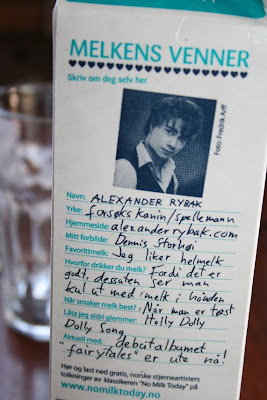 MELKENS VENNER
Skriv om deg selv her
Foto: Fredrik Arff
Navn: ALEXANDER RYBAK
Yrke: forsøkskanin/spellemann
Hjemmeside: alexanderrybak.com
Mitt forbilde: Dennis Storhøi
Favorittmelk: Jag liker helmelk
Hvorfor drikker du melk? fordi det er
godt, dessuten ser man
kul ut med melk i hånden
Når smaker melk best? Når man er tøst
Låta jeg aldri glemmer: Holly Dolly
Dolly Song
Aktuell med: debutalbumet
"fairytales" er ute nå!
Hør og last ned gratis, norske stjerneartisters
tolkninger av klassikeren "No Milk Today" på
www.nomilktoday.no